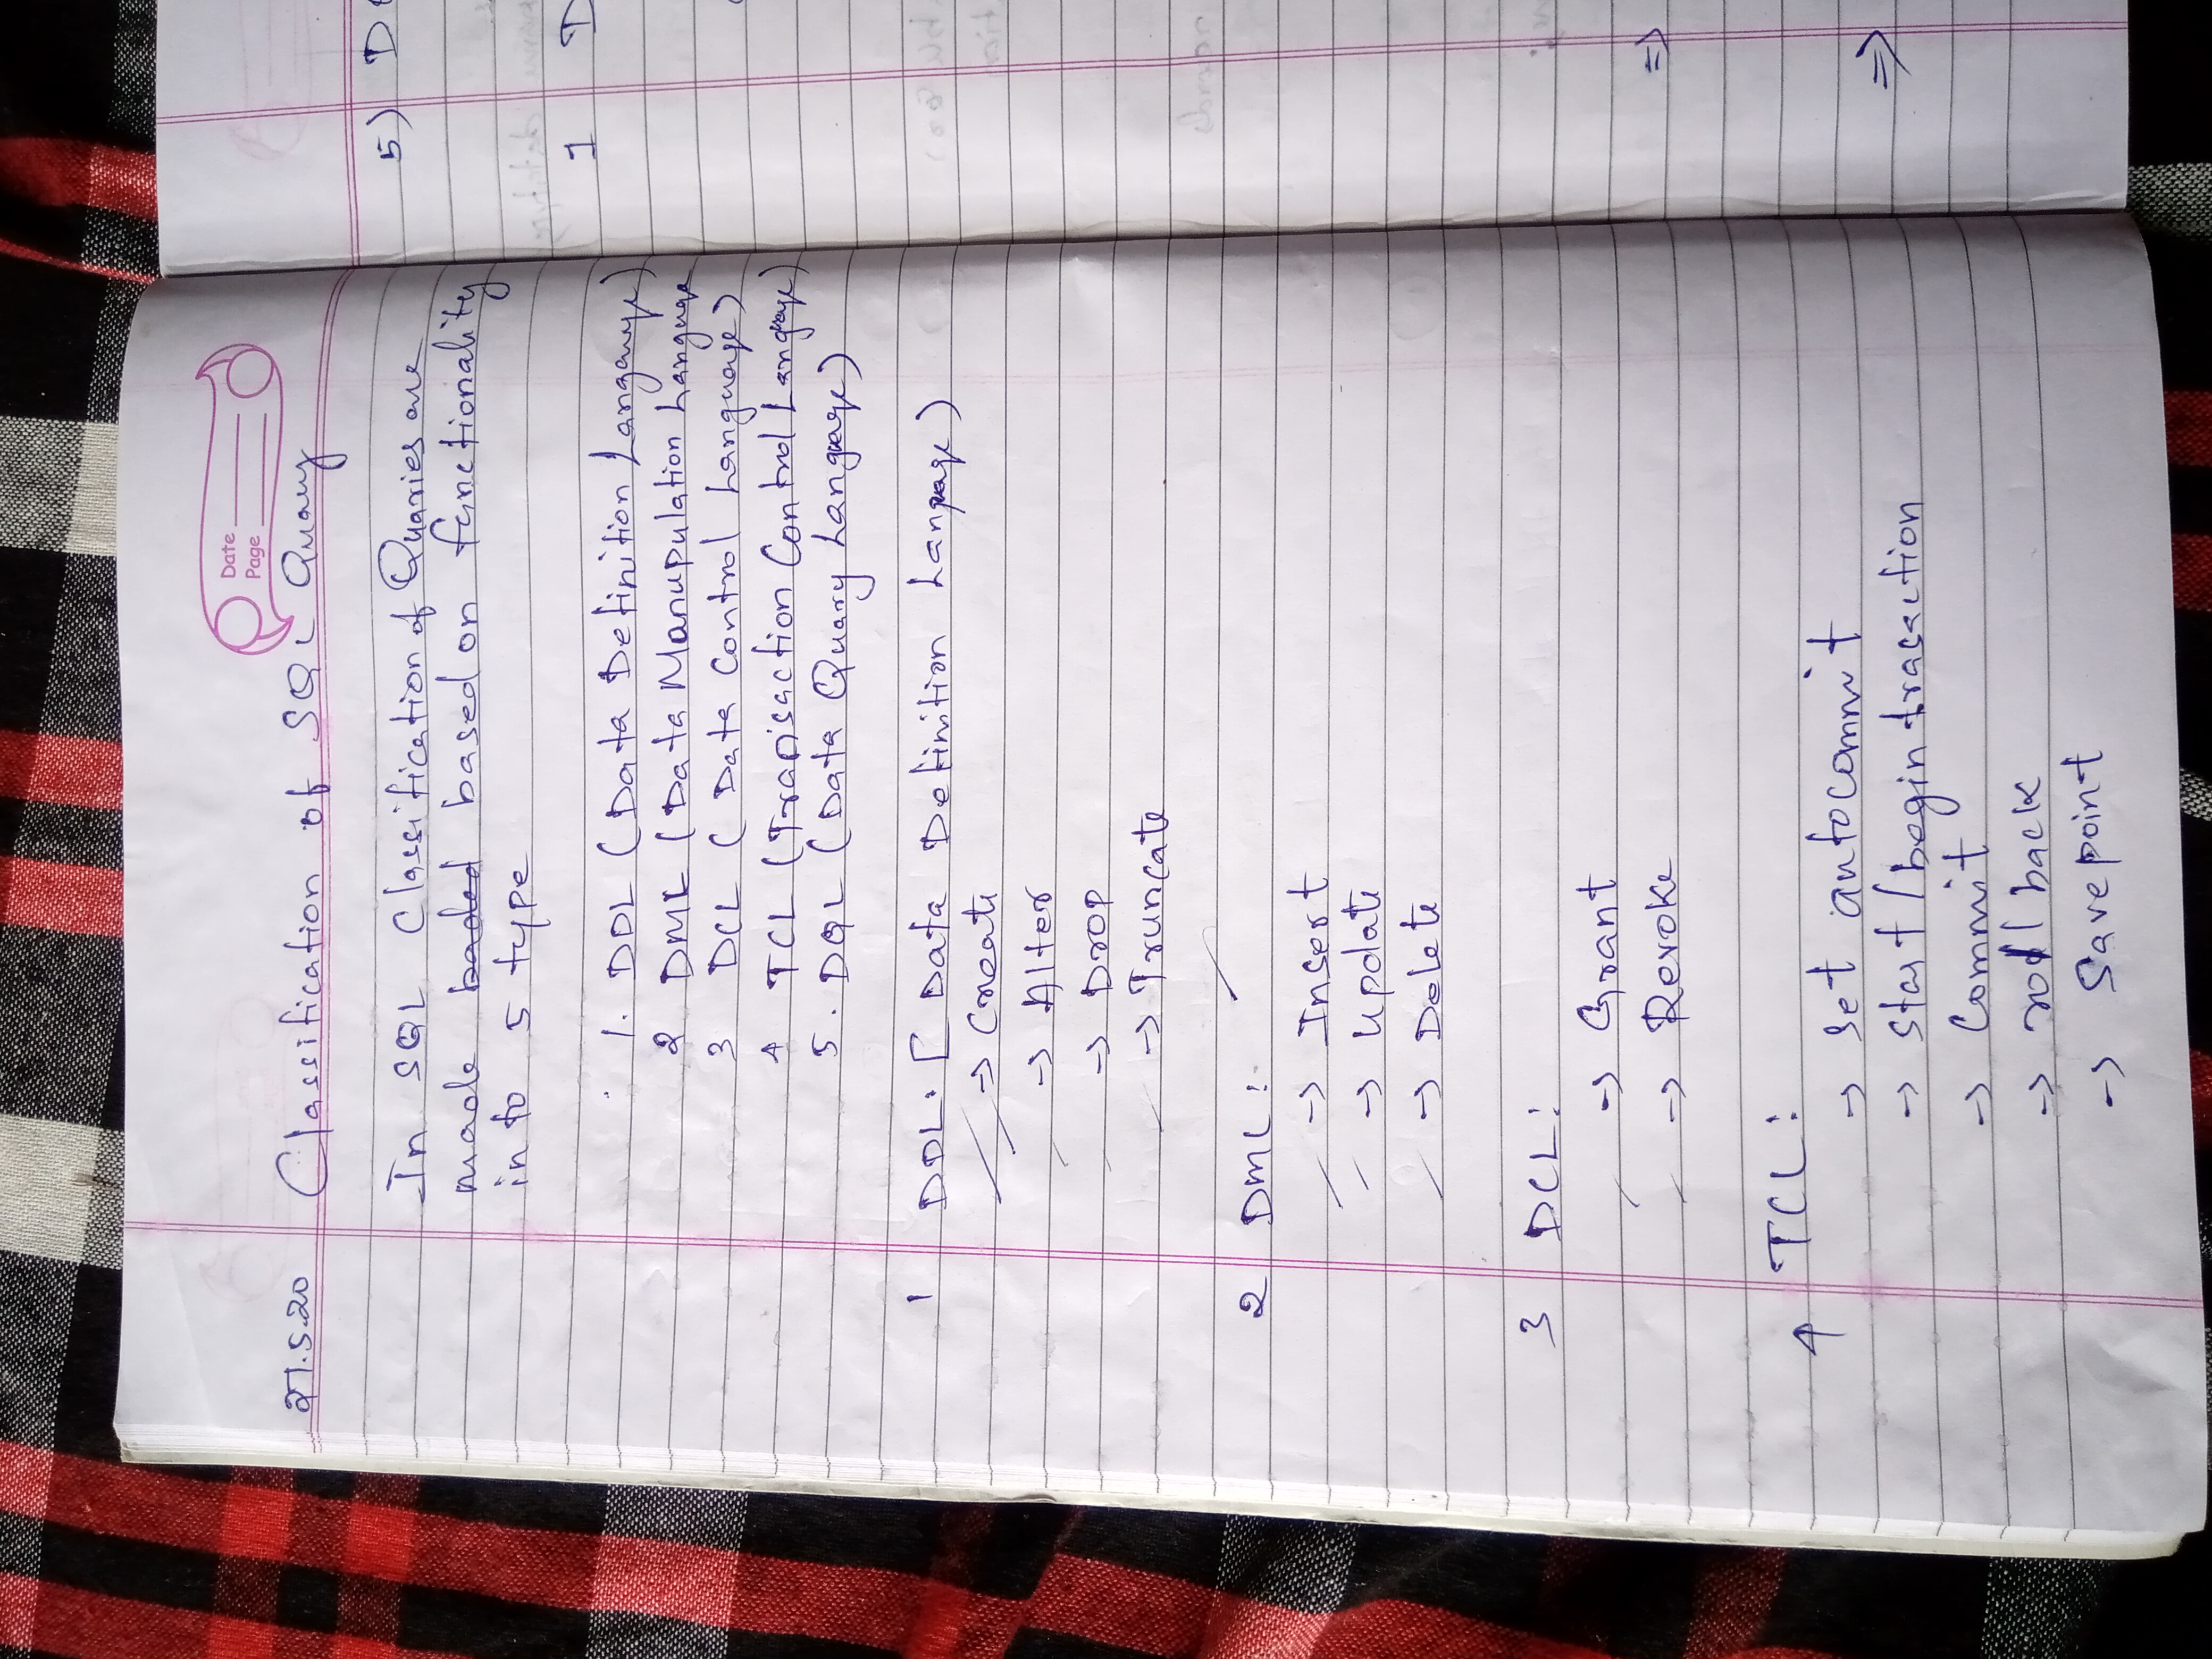 Date
Page
27.5.20 Classification of SQL Quary
In SQL Classification of Quaries are
made baded based on functionality
in to 5 type
1. DDL (Data Definition Langauge)
2 DML (Data Manupulation Language
3 DCL ( Data Control Language)
4 TCL (Transaction Control Language)
5. DQL (Data Quary Language)
1 DDL: [ Data Definition Language)
-> Create
-> Alter
-> Drop
-> Truncate
2 DML :-
-> Insert
-> Update
-> Delete
3 DCL:
-> Grant
-> Revoke
4 TCL:
-> Set autocommit
-> Start / begin trasaction
-> Commit
-> roll back
-> Savepoint
5) D
1 D
=>
=>